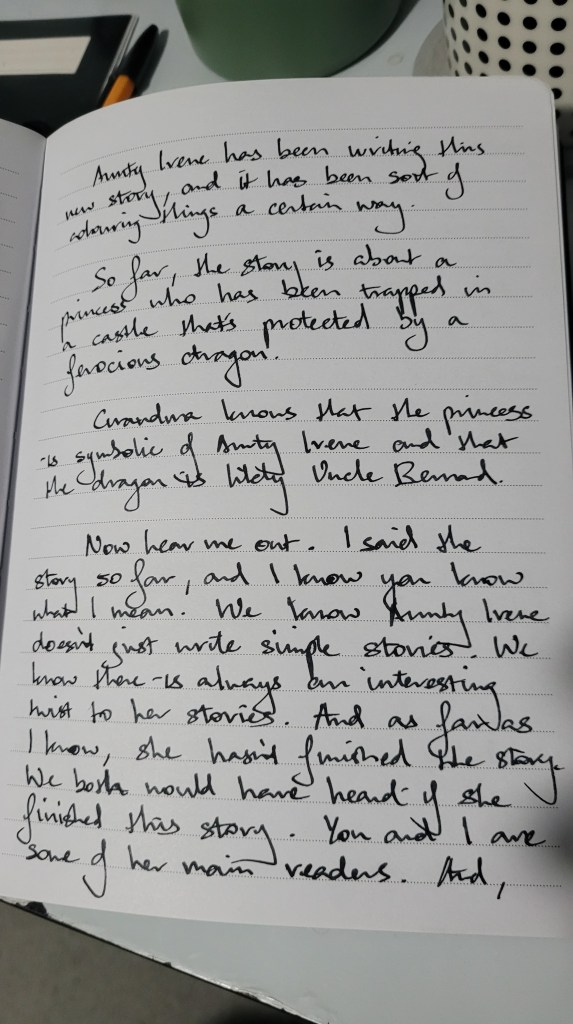 Aunty Irene has been writing this
new story, and it has been sort of
colouring things a certain way.
So far, the story is about a
princess who has been trapped in
a castle that's protected by a
ferocious dragon.
Grandma knows that the princess
is symbolic of Aunty Irene and that
the dragon is likely Uncle Bernard.
Now hear me out. I said the
story so far, and I know you know
what I mean. We know Aunty Irene
doesn't just write simple stories. We
know there is always an interesting
twist to her stories. And as far as
I know, she hasn't finished the story.
We both would have heard if she
finished this story. You and I are
some of her main readers. And,